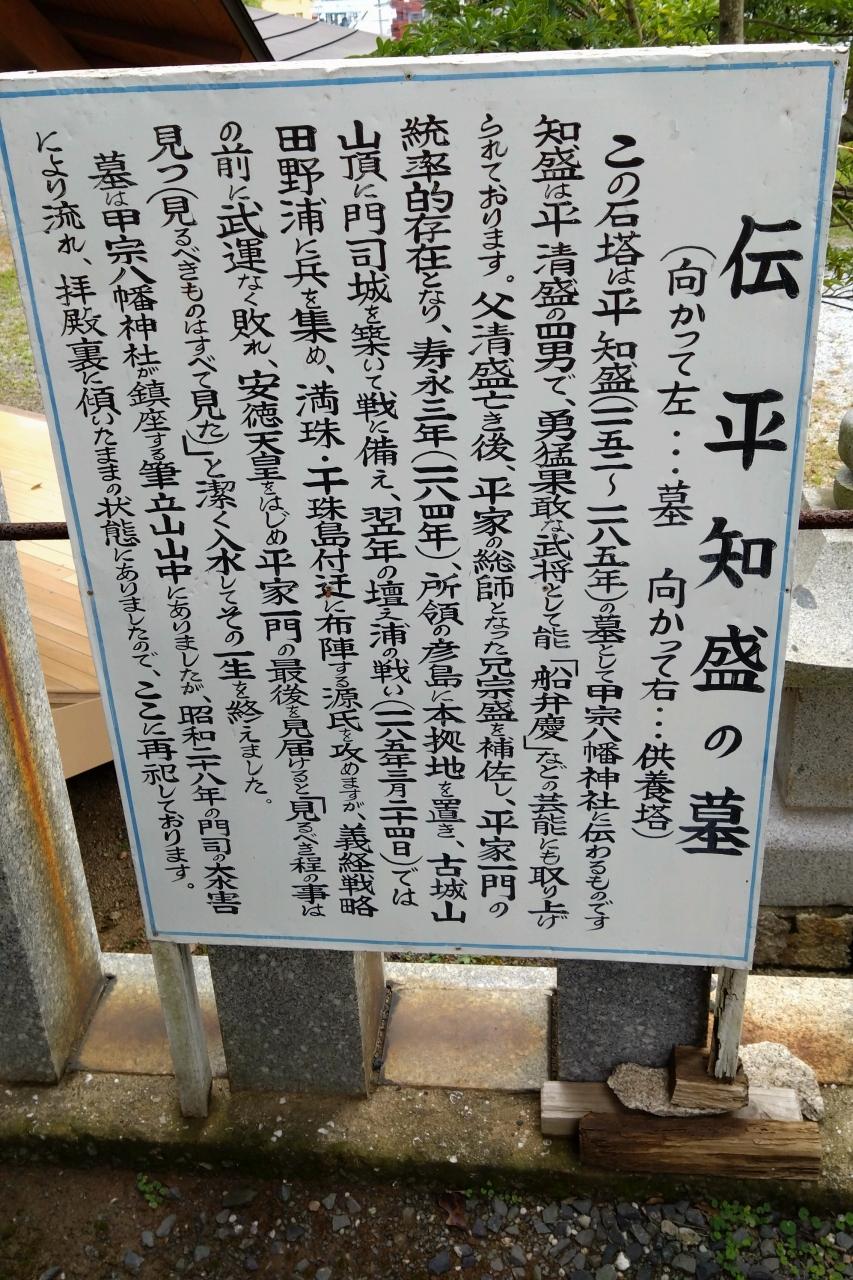 伝 平 知 盛 の 墓
(向かって左・・・墓 向かって右・・・供養塔)
この石塔は平 知盛(一一五二〜一一八五年)の墓として甲宗八幡神社に伝わるものです
知盛は平 清盛の四男で、勇猛果敢な武将として能「船弁慶」などの芸能にも取り上げ
られております。父清盛亡き後、平家の総師となった兄宗盛を補佐し、平家一門の
統率的存在となり、寿永三年(一一八四年)、所領の彦島に本拠地を置き、古城山
山頂に門司城を築いて戦に備え、翌年の壇之浦の戦い(一一八五年三月二十四日)では
田野浦に兵を集め、満珠・干珠島付近に布陣する源氏を攻めますが、義経戦略
の前に武運なく敗れ、安徳天皇をはじめ平家一門の最後を見届けると「見るべき程の事は
見つ(見るべきものはすべて見た)」と潔く入水してその一生を終えました。
墓は甲宗八幡神社が鎮座する筆立山山中にありましたが、昭和二十八年の門司の大水害
により流れ、拝殿裏に傾いたままの状態にありましたので、ここに再祀しております。